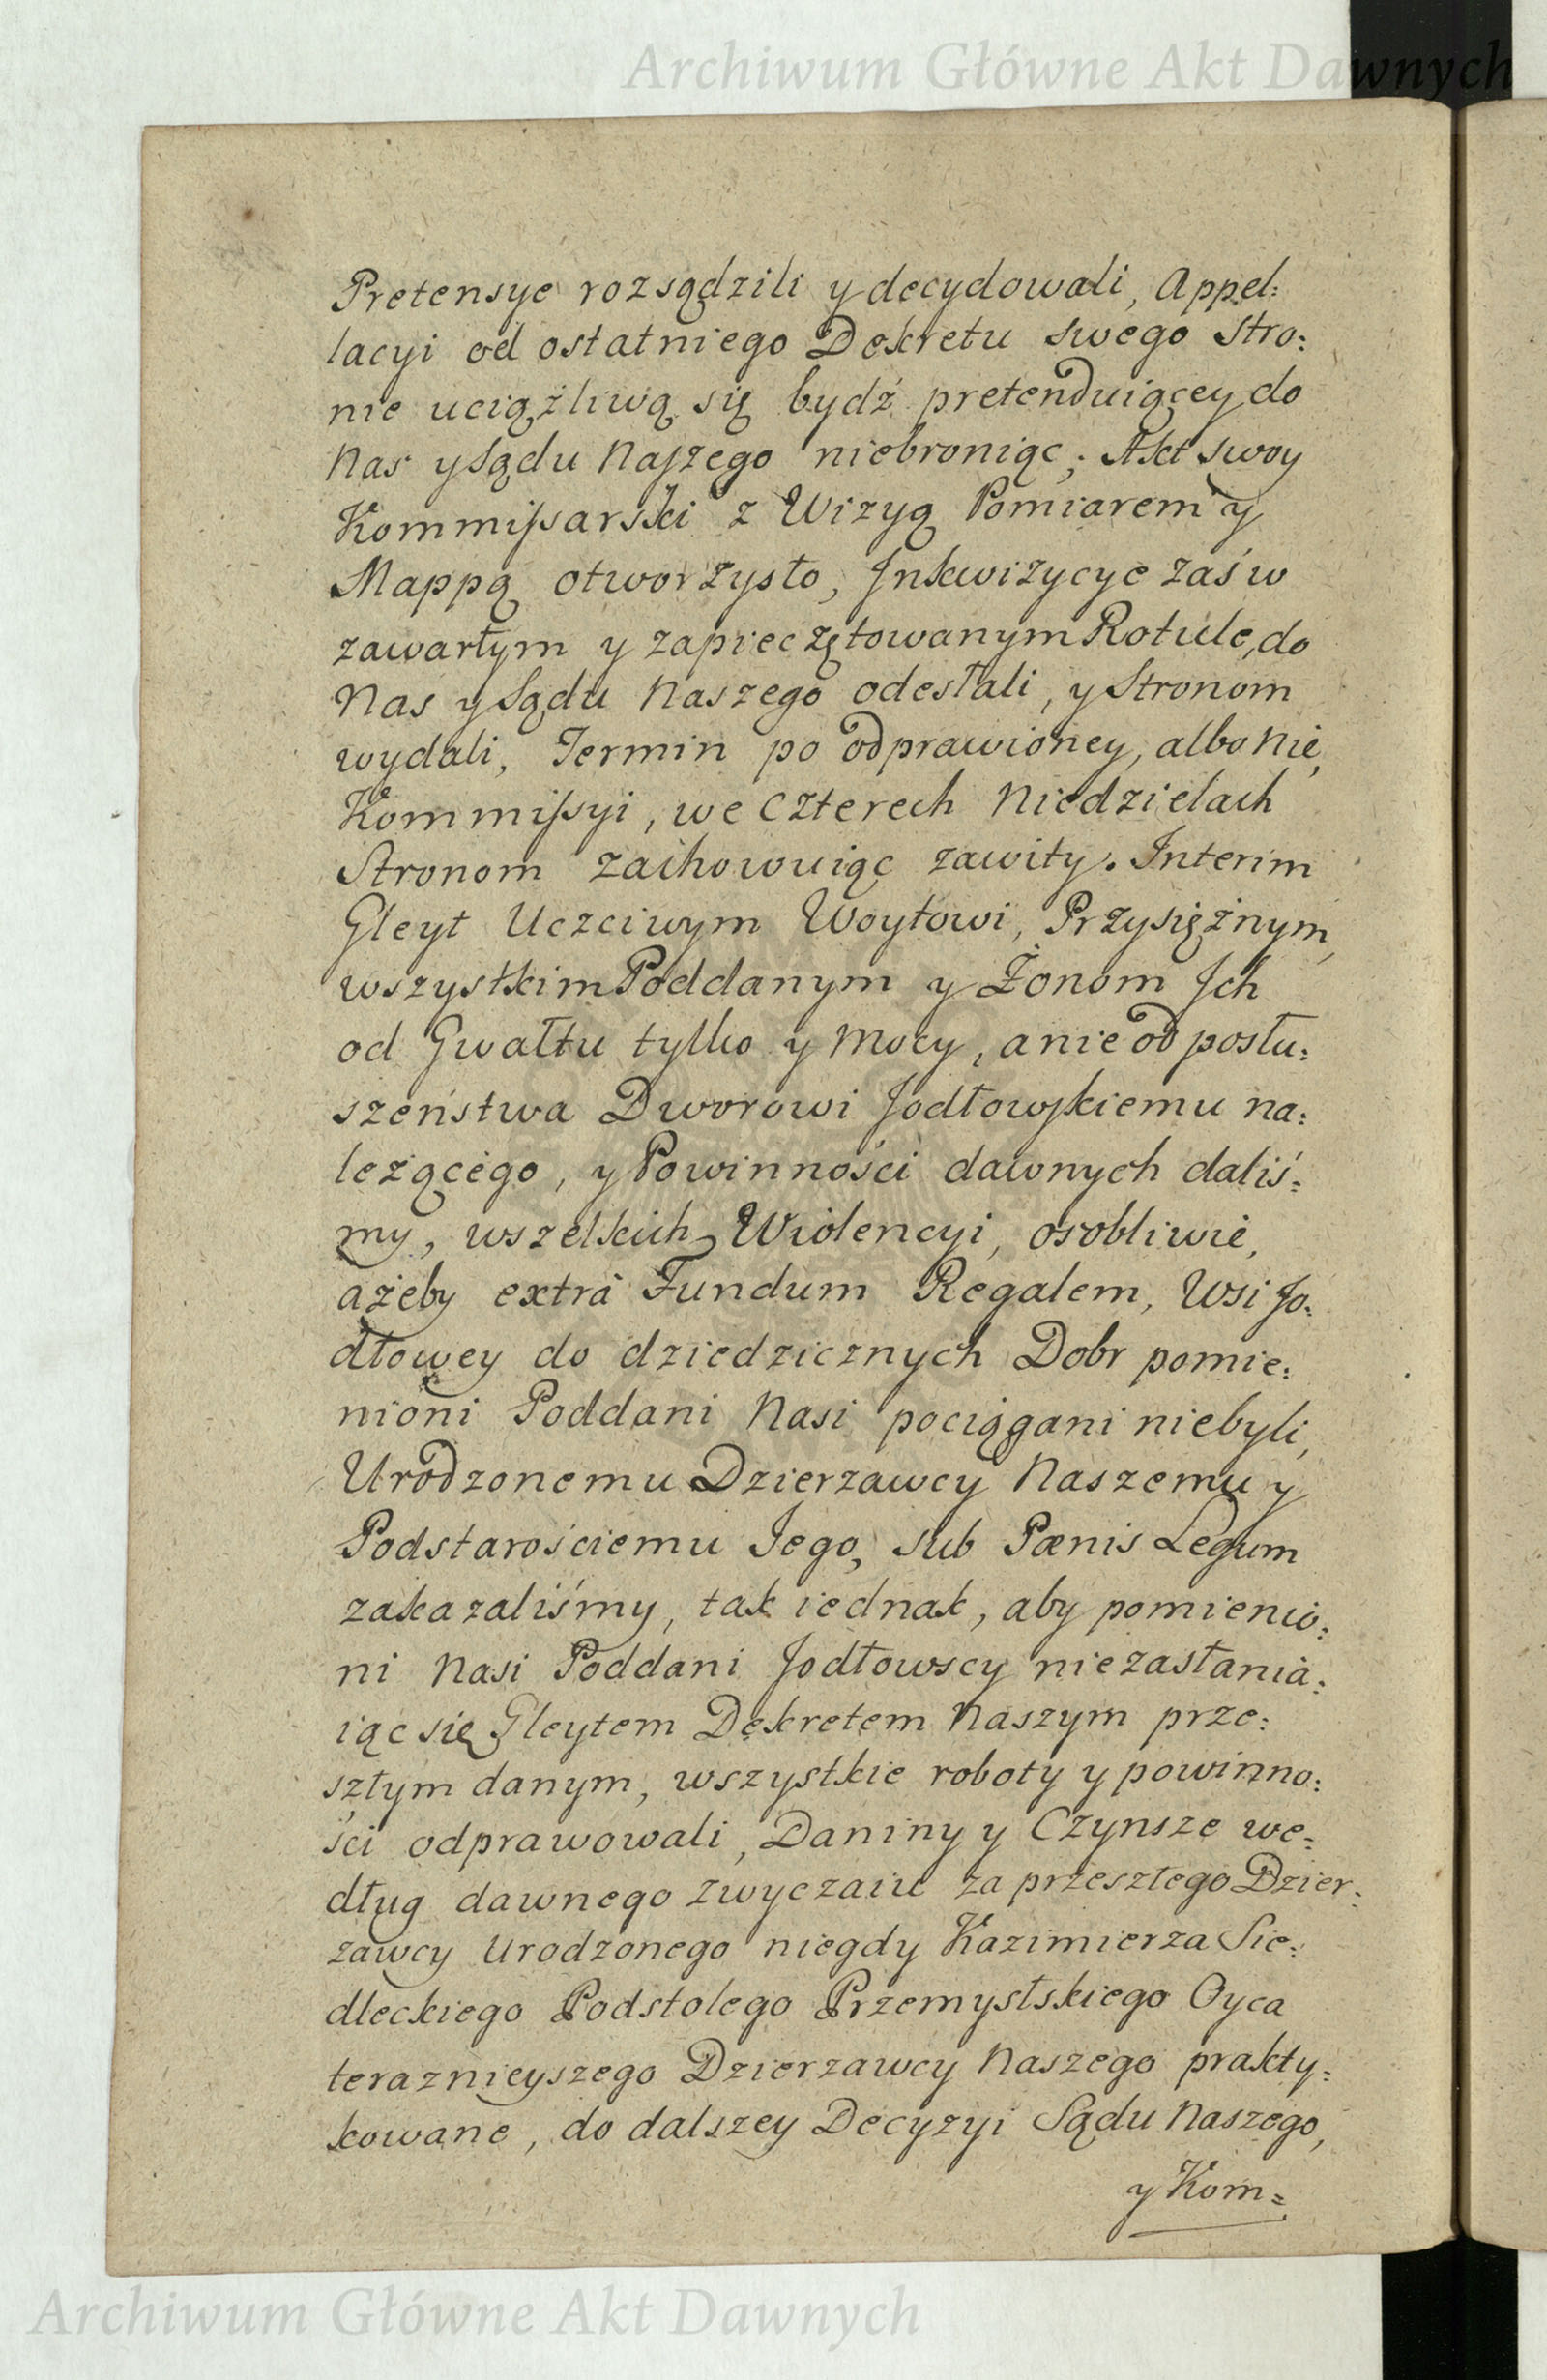 Archiwum Główne Akt Dawnych
Pretensye rozsądzili y decydowali, Appel:
lacyi od ostatniego Dekretu swego Stro:
nie uciążliwą się bydź pretenduiącey do
Nas y Sądu Naszego niebroniąc; Akt swoy
Kommissarski z Wizyą Pomiarem y
Mappą otworzysto, Inkwizycye zaś w
zawartym y zapieczętowanym Rotule, do
Nas y Sądu Naszego odesłali, y Stronom
wydali, Termin po odprawioney, albo nie,
Kommissyi, we czterech Niedzielach
Stronom zachowuiąc zawity. Interim
Gleyt Uczciwym Woytowi, Przysiężnym,
wszystkim Poddanym y Żonom Ich
od Gwałtu tylko y Mocy, a nie od posłu:
szeństwa Dworowi Jodłowskiemu na:
leżącego, y Powinności dawnych daliś:
my, wszelkich Wiolencyi, osobliwie,
ażeby extrà Fundum Regalem, Wsi Jo:
dłowey do dziedzicznych Dobr pomie:
nioni Poddani Nasi pociągani niebyli,
Urodzonemu Dzierzawcy Naszemu y
Podstarościemu Jego, sub Pœnis Legum
zakazaliśmy, tak iednak, aby pomienio:
ni Nasi Poddani Jodłowscy niezasłania:
iąc się Gleytem Dekretem Naszym prze:
szłym danym, wszystkie roboty y powinno:
ści odprawowali, Daniny y Czynsze we:
dług dawnego zwyczaiu za przeszłego Dzier:
zawcy Urodzonego niegdy Kazimierza Sie:
dleckiego Podstolego Przemyslskiego Oyca
teraznieyszego Dzierzawcy Naszego prakty:
kowane, do dalszey Decyzyi Sądu Naszego,
y Kom=
Archiwum Główne Akt Dawnych